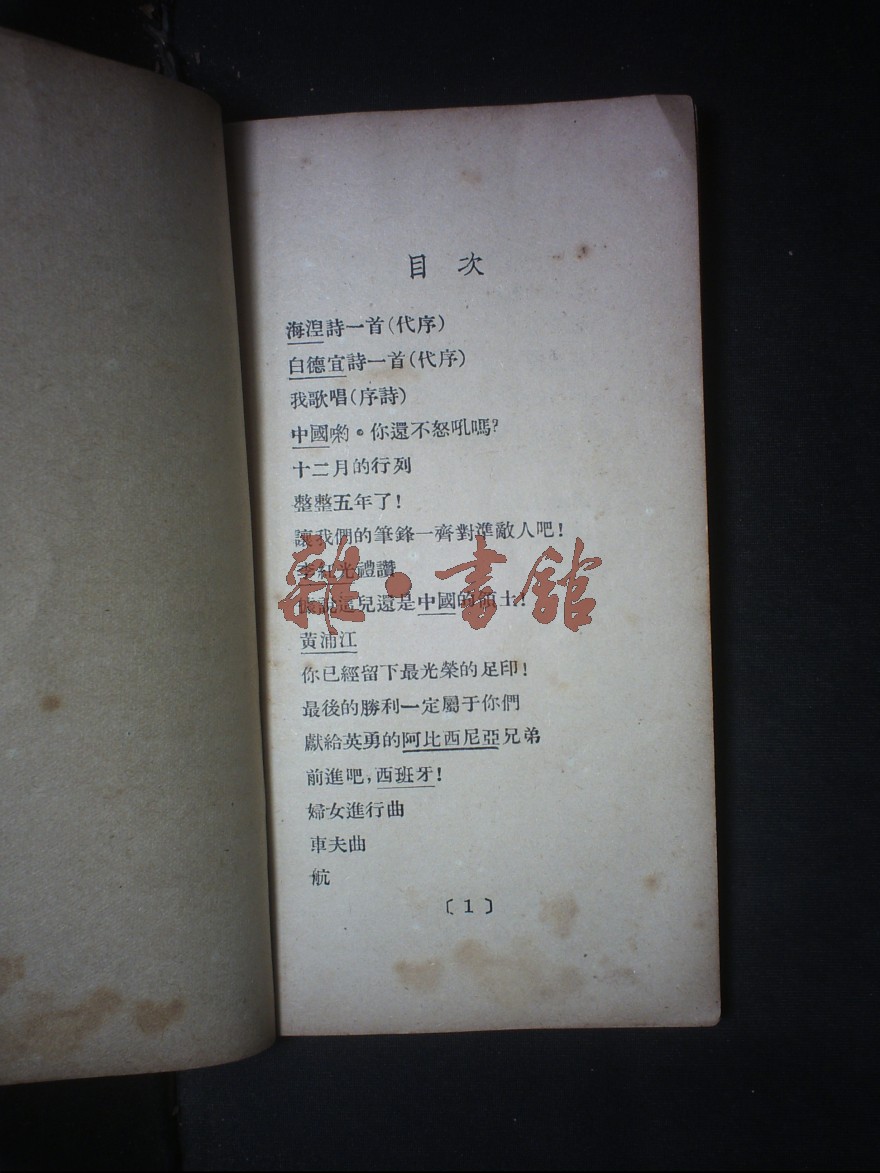 目次
海湼詩一首(代序)
白德宜詩一首(代序)
我歌唱(序詩)
中國喲。你還不怒吼嗎?
十二月的行列
整整五年了!
讓我們的筆鋒一齊對準敵人吧!
李紅光禮讚
據說這兒還是中國的領土!
雜·書舘
黃浦江
你已經留下最光榮的足印!
最後的勝利一定屬于你們
獻給英勇的阿比西尼亞兄弟
前進吧,西班牙!
婦女進行曲
車夫曲
航
〔1〕